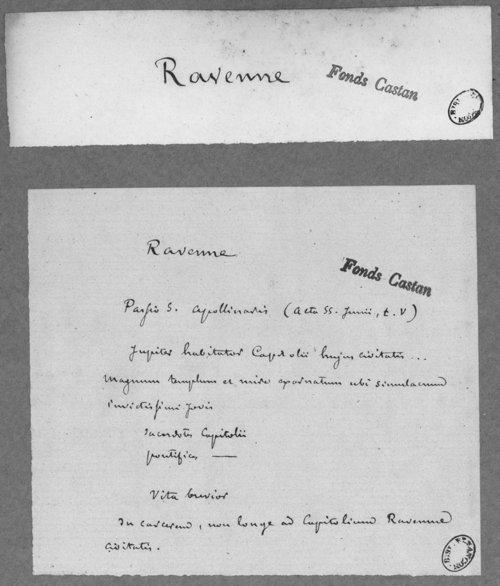 Ravenne
Fonds Castan
Ravenne
Fonds Castan
Passio S. Apollinaris (Acta SS. Junii, t. V)
Jupiter habitator Capitolii hujus civitatis ...
Magnum templum et mire exornatum ubi simulacrum
invictissimi Jovis
Sacerdotes Capitolii
pontifices —
Vita brevior
In carcerem, non longe ad Capitolium Ravenne
civitatis.